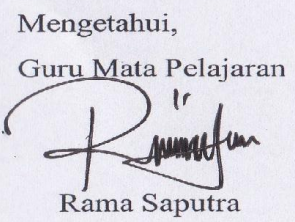 Mengetahui,
Guru Mata Pelajaran
Rama Saputra